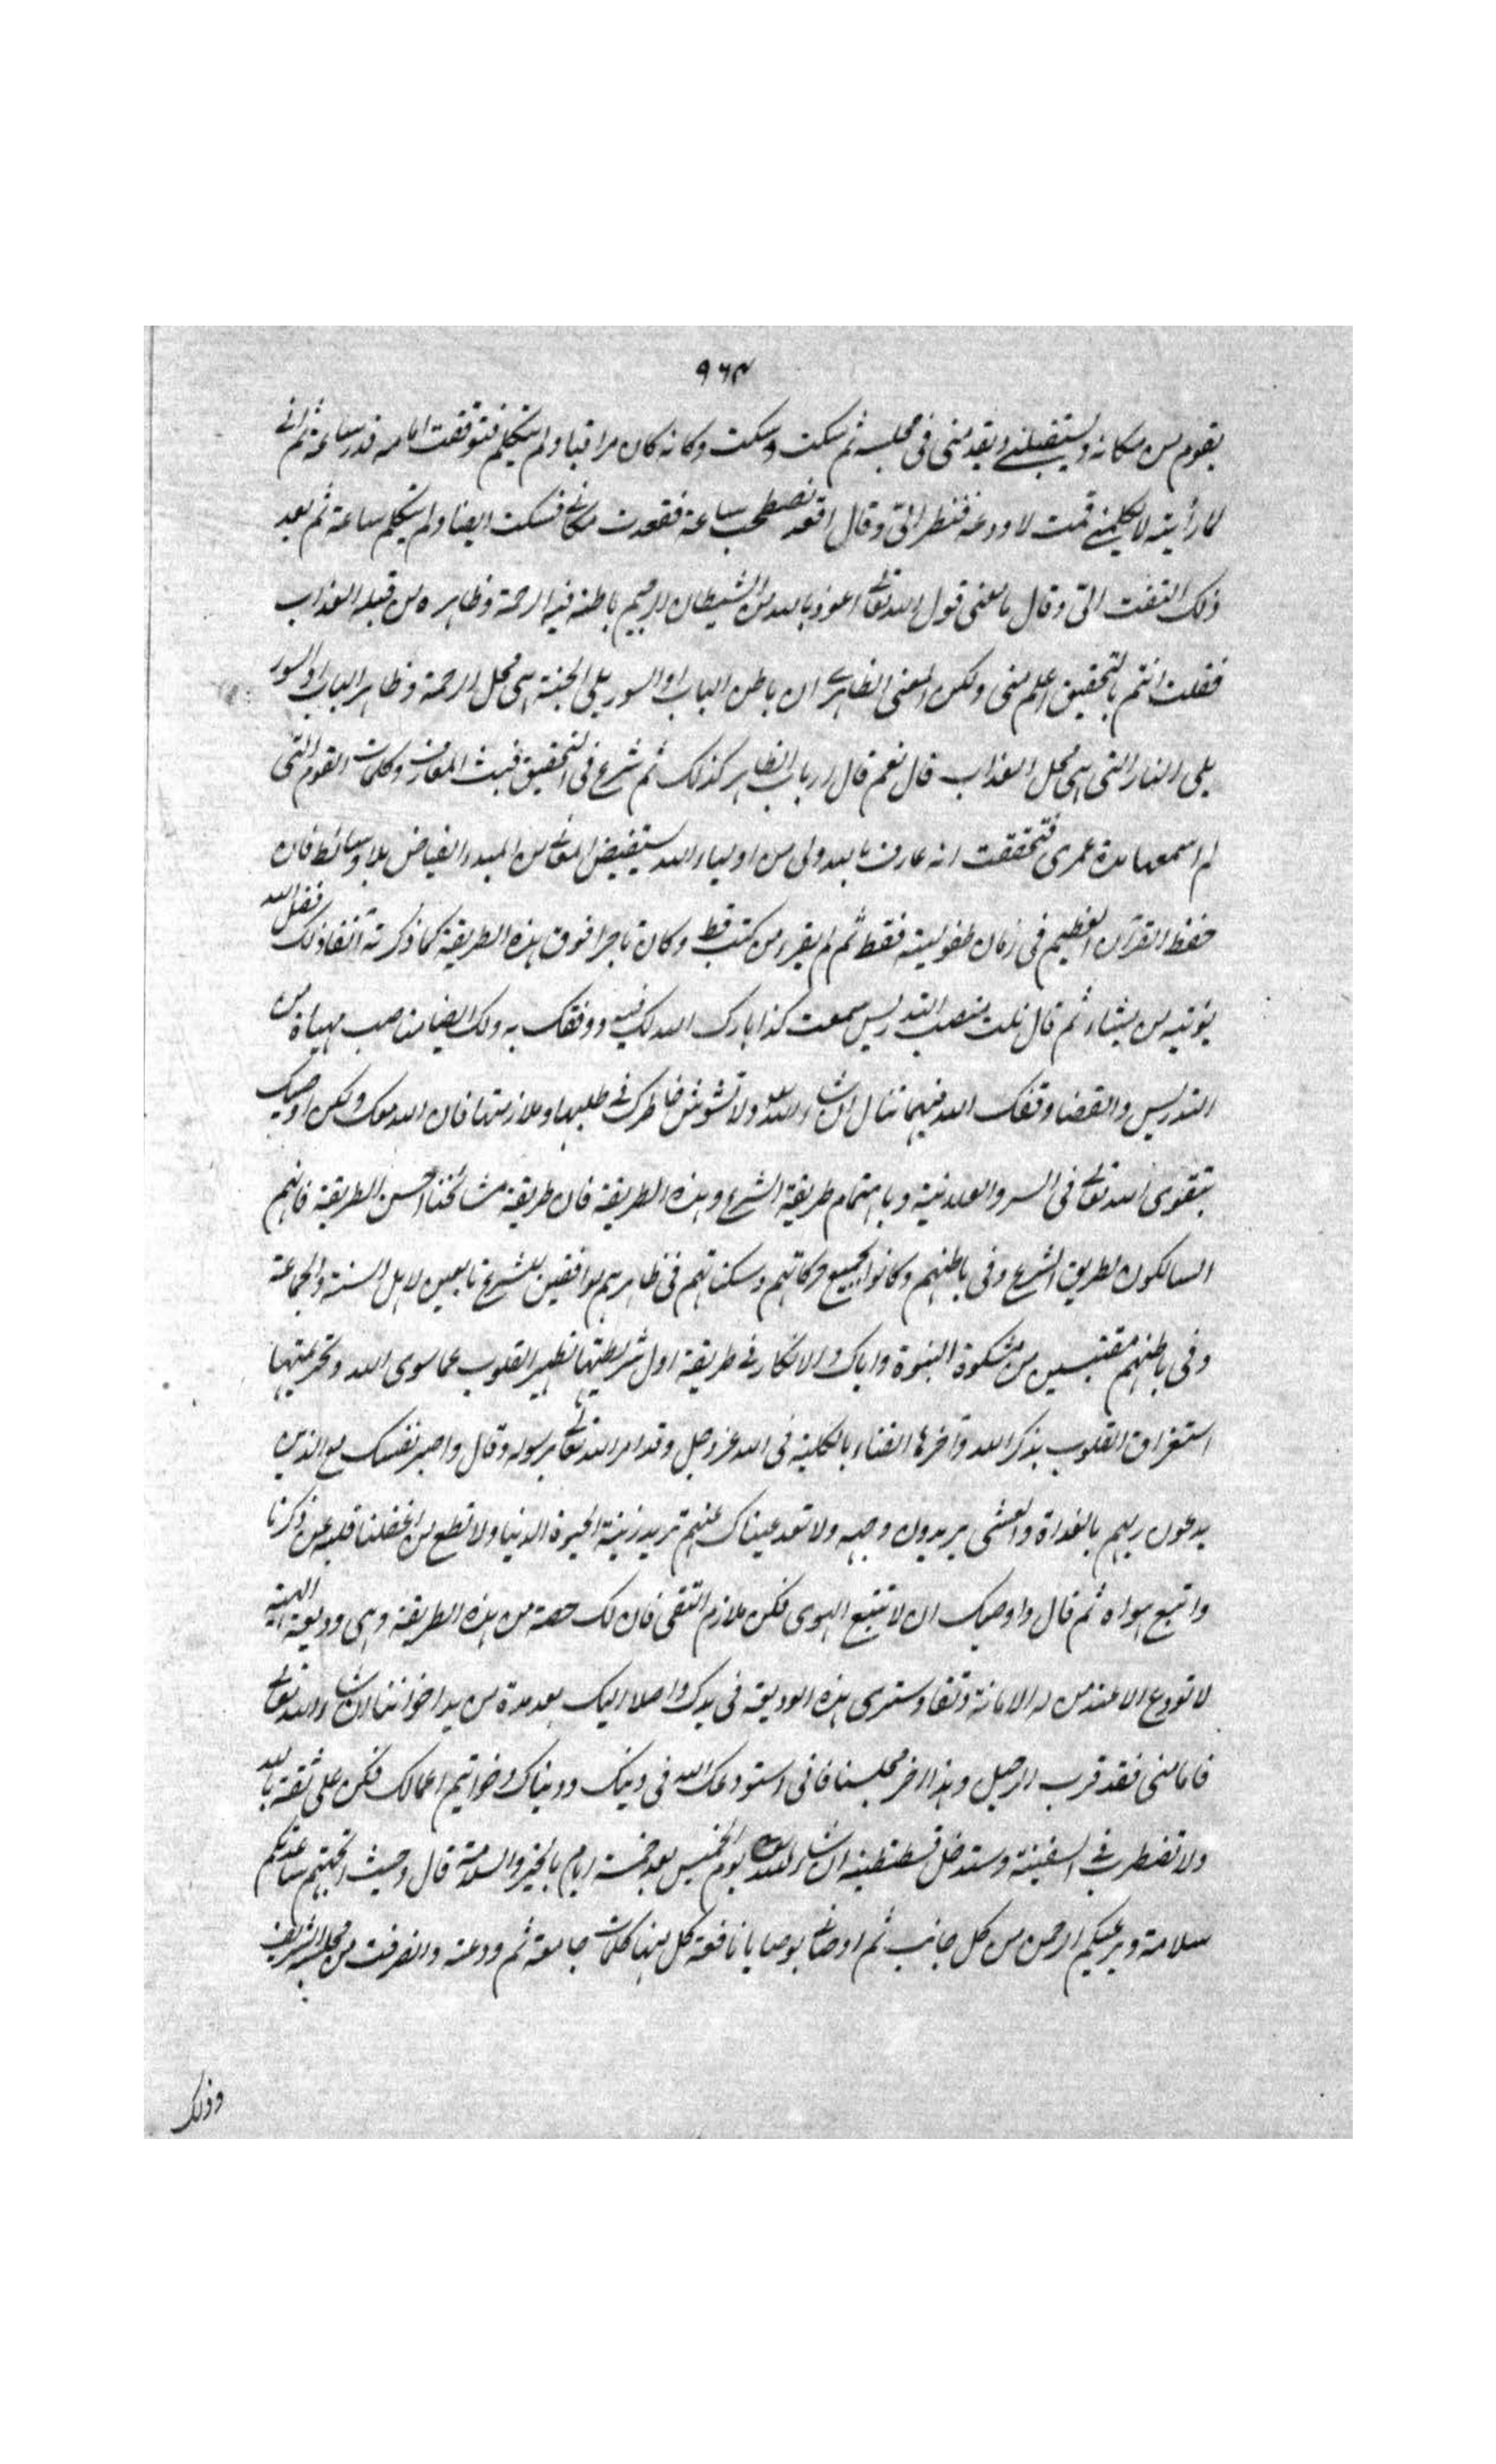 ٩٦٣
يقوم من مكانه ويستقبلنى ويقدمنى فى مجلسه ثم سكت وسكت وكانه كان مراقبا ولم يتكلم فتوقفت امامه قدر ساعة ثم انى
لما رأيته لا يكلمنى قمت لاودعه فنظر الىّ وقال اقعد نصطحب ساعة فقعدت مكانى فسكت ايضا ولم يتكلم ساعة ثم بعد
ذلك التفت الىّ وقال ما معنى قول الله تعالى اعوذ بالله من الشيطان الرجيم باطنه فيه الرحمة وظاهره من قبله العذاب
فقلت انتم بالتحقيق اعلم منى ولكن المعنى الظاهرى ان باطن الباب او السور يلى الجنة هى محل الرحمة وظاهر الباب او السور
يلى النار التى هى محل العذاب قال نعم قال ارباب الظاهر كذلك ثم شرع فى التحقيق فبث المعارف وكلمات القوم التى
لم اسمعها مدة عمرى فتحققت انه عارف بالله ولى من اولياء الله يستفيض المعانى من المبدء الفياض بلا وسائط فانه
حفظ القرآن العظيم فى زمان طفوليته فقط ثم لم يقرء من كتب قط وكان تاجرا فوق هذه الطريقة كما ذكرته آنفا ذلك فضل الله
يؤتيه من يشاء ثم قال نلت منصب التدريس سمعت كذا بارك الله لك فيه ووفقك به ولك ايضا مناصب مهياة من
التدريس والقضا وفقك الله فيهما تنال ان شاء الله تعالى ولا تشوش خاطرك فى طلبها وملازمتها فان الله معك ولكن اوصيك
بتقوى الله تعالى فى السر والعلانية وباهتمام طريقة الشرع وهذه الطريقة فان طريقة مشائخنا احسن الطريقة فانهم
السالكون لطريق الشرع وفى باطنهم وكانوا بجميع حركاتهم وسكناتهم فى ظاهرهم موافقين للشرع تابعين لاهل السنة والجماعة
وفى باطنهم مقتبسين من مشكوة النبوة واياك والانكار فى طريقة اول شرايطها تطهير القلوب عما سوى الله وتحريمتها
استغراق القلوب بذكر الله وآخرها الفناء بالكلية فى الله عز وجل وقد امر الله تعالى رسوله وقال واصبر نفسك مع الذين
يدعون ربهم بالغداة والعشى يريدون وجهه ولا تعد عيناك عنهم تريد زينة الحيوة الدنيا ولا تطع من اغفلنا قلبه عن ذكرنا
واتبع هواه ثم قال واوصيك ان لا تتبع الهوى فكن ملازم التقى فان لك حصة من هذه الطريقة وهى وديعة الهية
لا تودع الا عند من له الامانة وتقا وسترى هذه الوديعة فى يدك واصلا اليك بعد مدة من يد اخواننا ان شاء الله تعالى
فاما منى فقد قرب الرحيل وهذا اخر مجلسنا فانى استودعك الله فى دينك ودنياك وخواتيم اعمالك فكن على ثقة بالله
ولا تضطرب فى السفينة وستدخل قسطنطينية ان شاء الله تعالى يوم الخميس بعد خمسة ايام بالخير والسلامة قال وحيث اتجهتم ساعدتكم
سلامة ويرعيكم الرحمن من كل جانب ثم اوصانى بوصايا نافعة كل منها كلمات جامعة ثم ودعته وانصرفت من مجلسه الشريف
وذلك